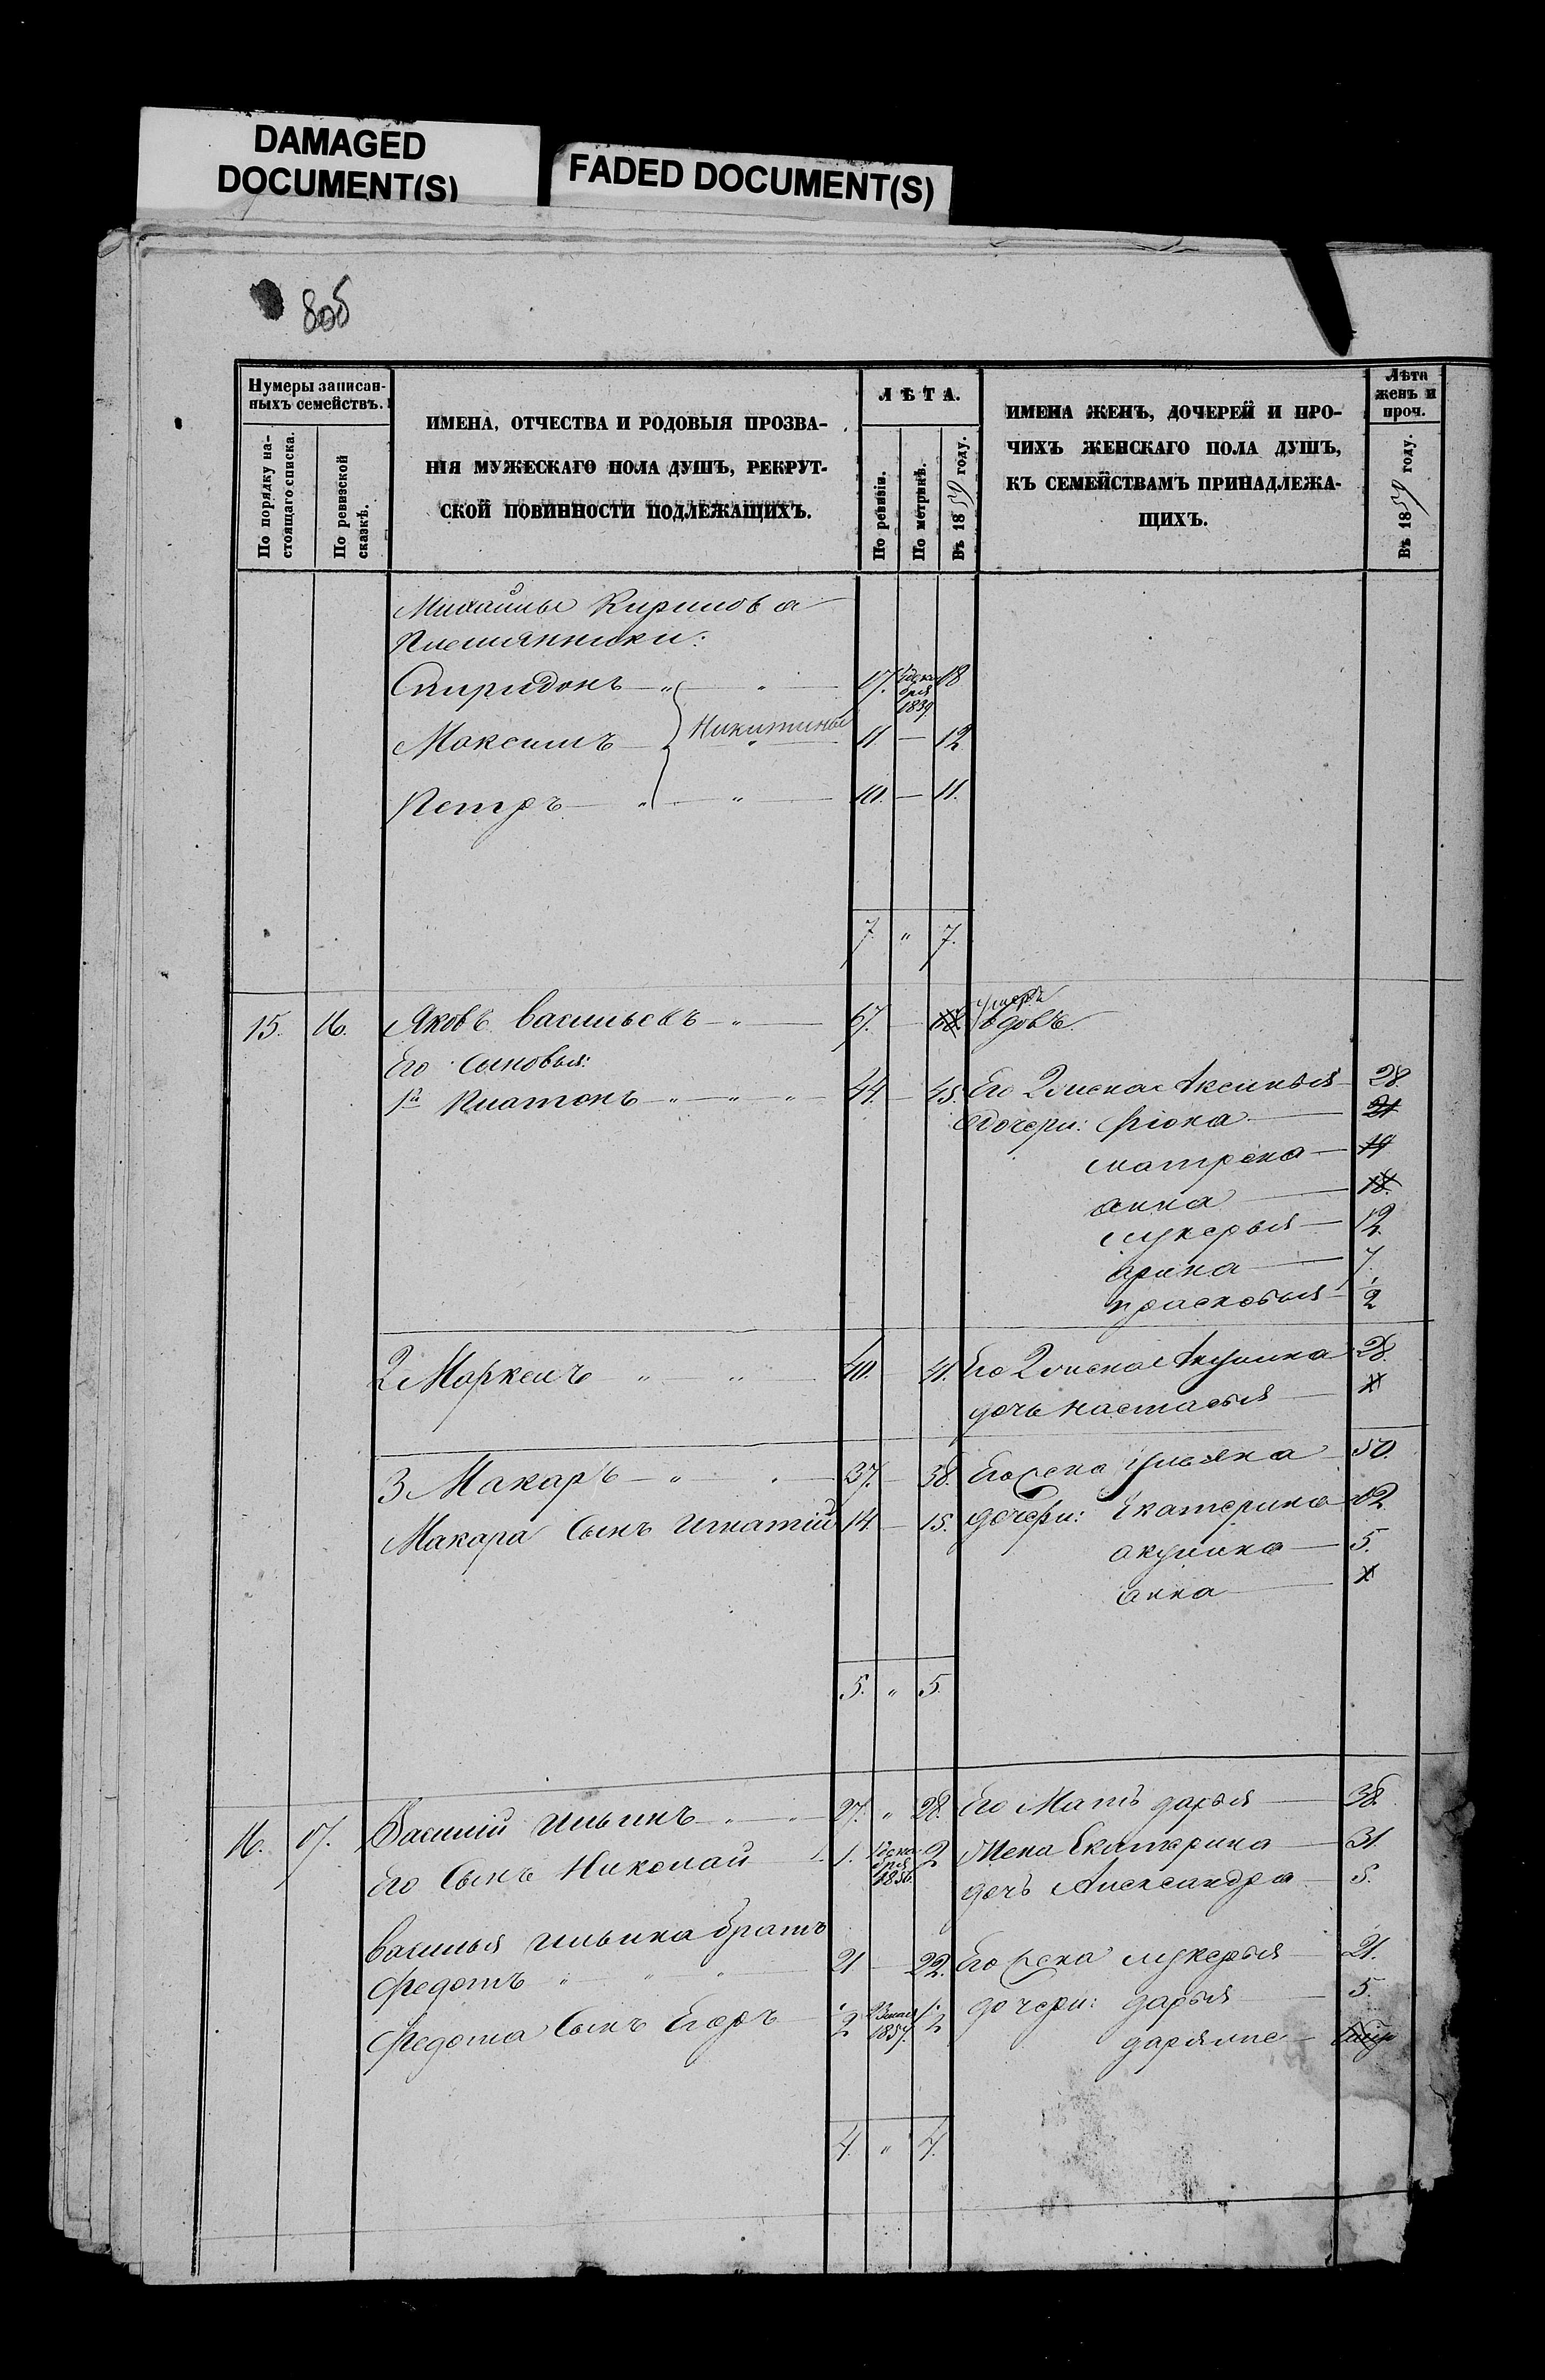 DAMAGED
DOCUMENT(S)
FADED DOCUMENT(S)
805
Нумеры записан-
ныхъ семействъ.
По порядку на-
стоящаго списка.
По ревизской
сказкѣ.
ИМЕНА, ОТЧЕСТВА И РОДОВЫЯ ПРОЗВА-
НІЯ МУЖЕСКАГО ПОЛА ДУШЪ, РЕКРУТ-
СКОЙ ПОВИННОСТИ ПОДЛЕЖАЩИХЪ.
ЛѢТА.
По ревизіи.
По метрикѣ.
Въ 1859 году.
ИМЕНА ЖЕНЪ, ДОЧЕРЕЙ И ПРО-
ЧИХЪ ЖЕНСКАГО ПОЛА ДУШЪ,
КЪ СЕМЕЙСТВАМЪ ПРИНАДЛЕЖА-
ЩИХЪ.
Лѣта
женъ и
проч.
Въ 1859 году.
Михайлы Кирилова
Племянники:
Спиридонъ 17. декабря 1839 18
Максимъ Никитины 11 — 12
Петръ 10. — 11.
7 " 7.
15. 16. Яковъ Васильевъ 67. — 68. умеръ вдовъ
Его Сыновья:
1й Платонъ 44. — 45. Его 2 жена Аксинья 28.
дочери: Фіона 21
матрена 19
анна 18.
лукерья 12
арина 7
прасковья 1/2
2 Маркелъ 40. 41. Его 2 жена Акулина 28.
дочь настасья
3 Макаръ 37. — 38. Его жена Ульяна 50.
Макара Сынъ Игнатій 14. — 15. дочери: Екатерина 12
акулина 5.
анна
5. " 5.
16. 17. Василій Ильинъ 27. " 28. Его Мать дарья 38.
Его Сынъ Николай 1. декабря 1856 2 Жена Екатерина 31.
дочь Александра 5.
Василья Ильина братъ
Федотъ 21 — 22. Его жена лукерья 21.
Федота Сынъ Егоръ 1/2 1857. 1/2 дочери: дарья 5.
4. " 4.